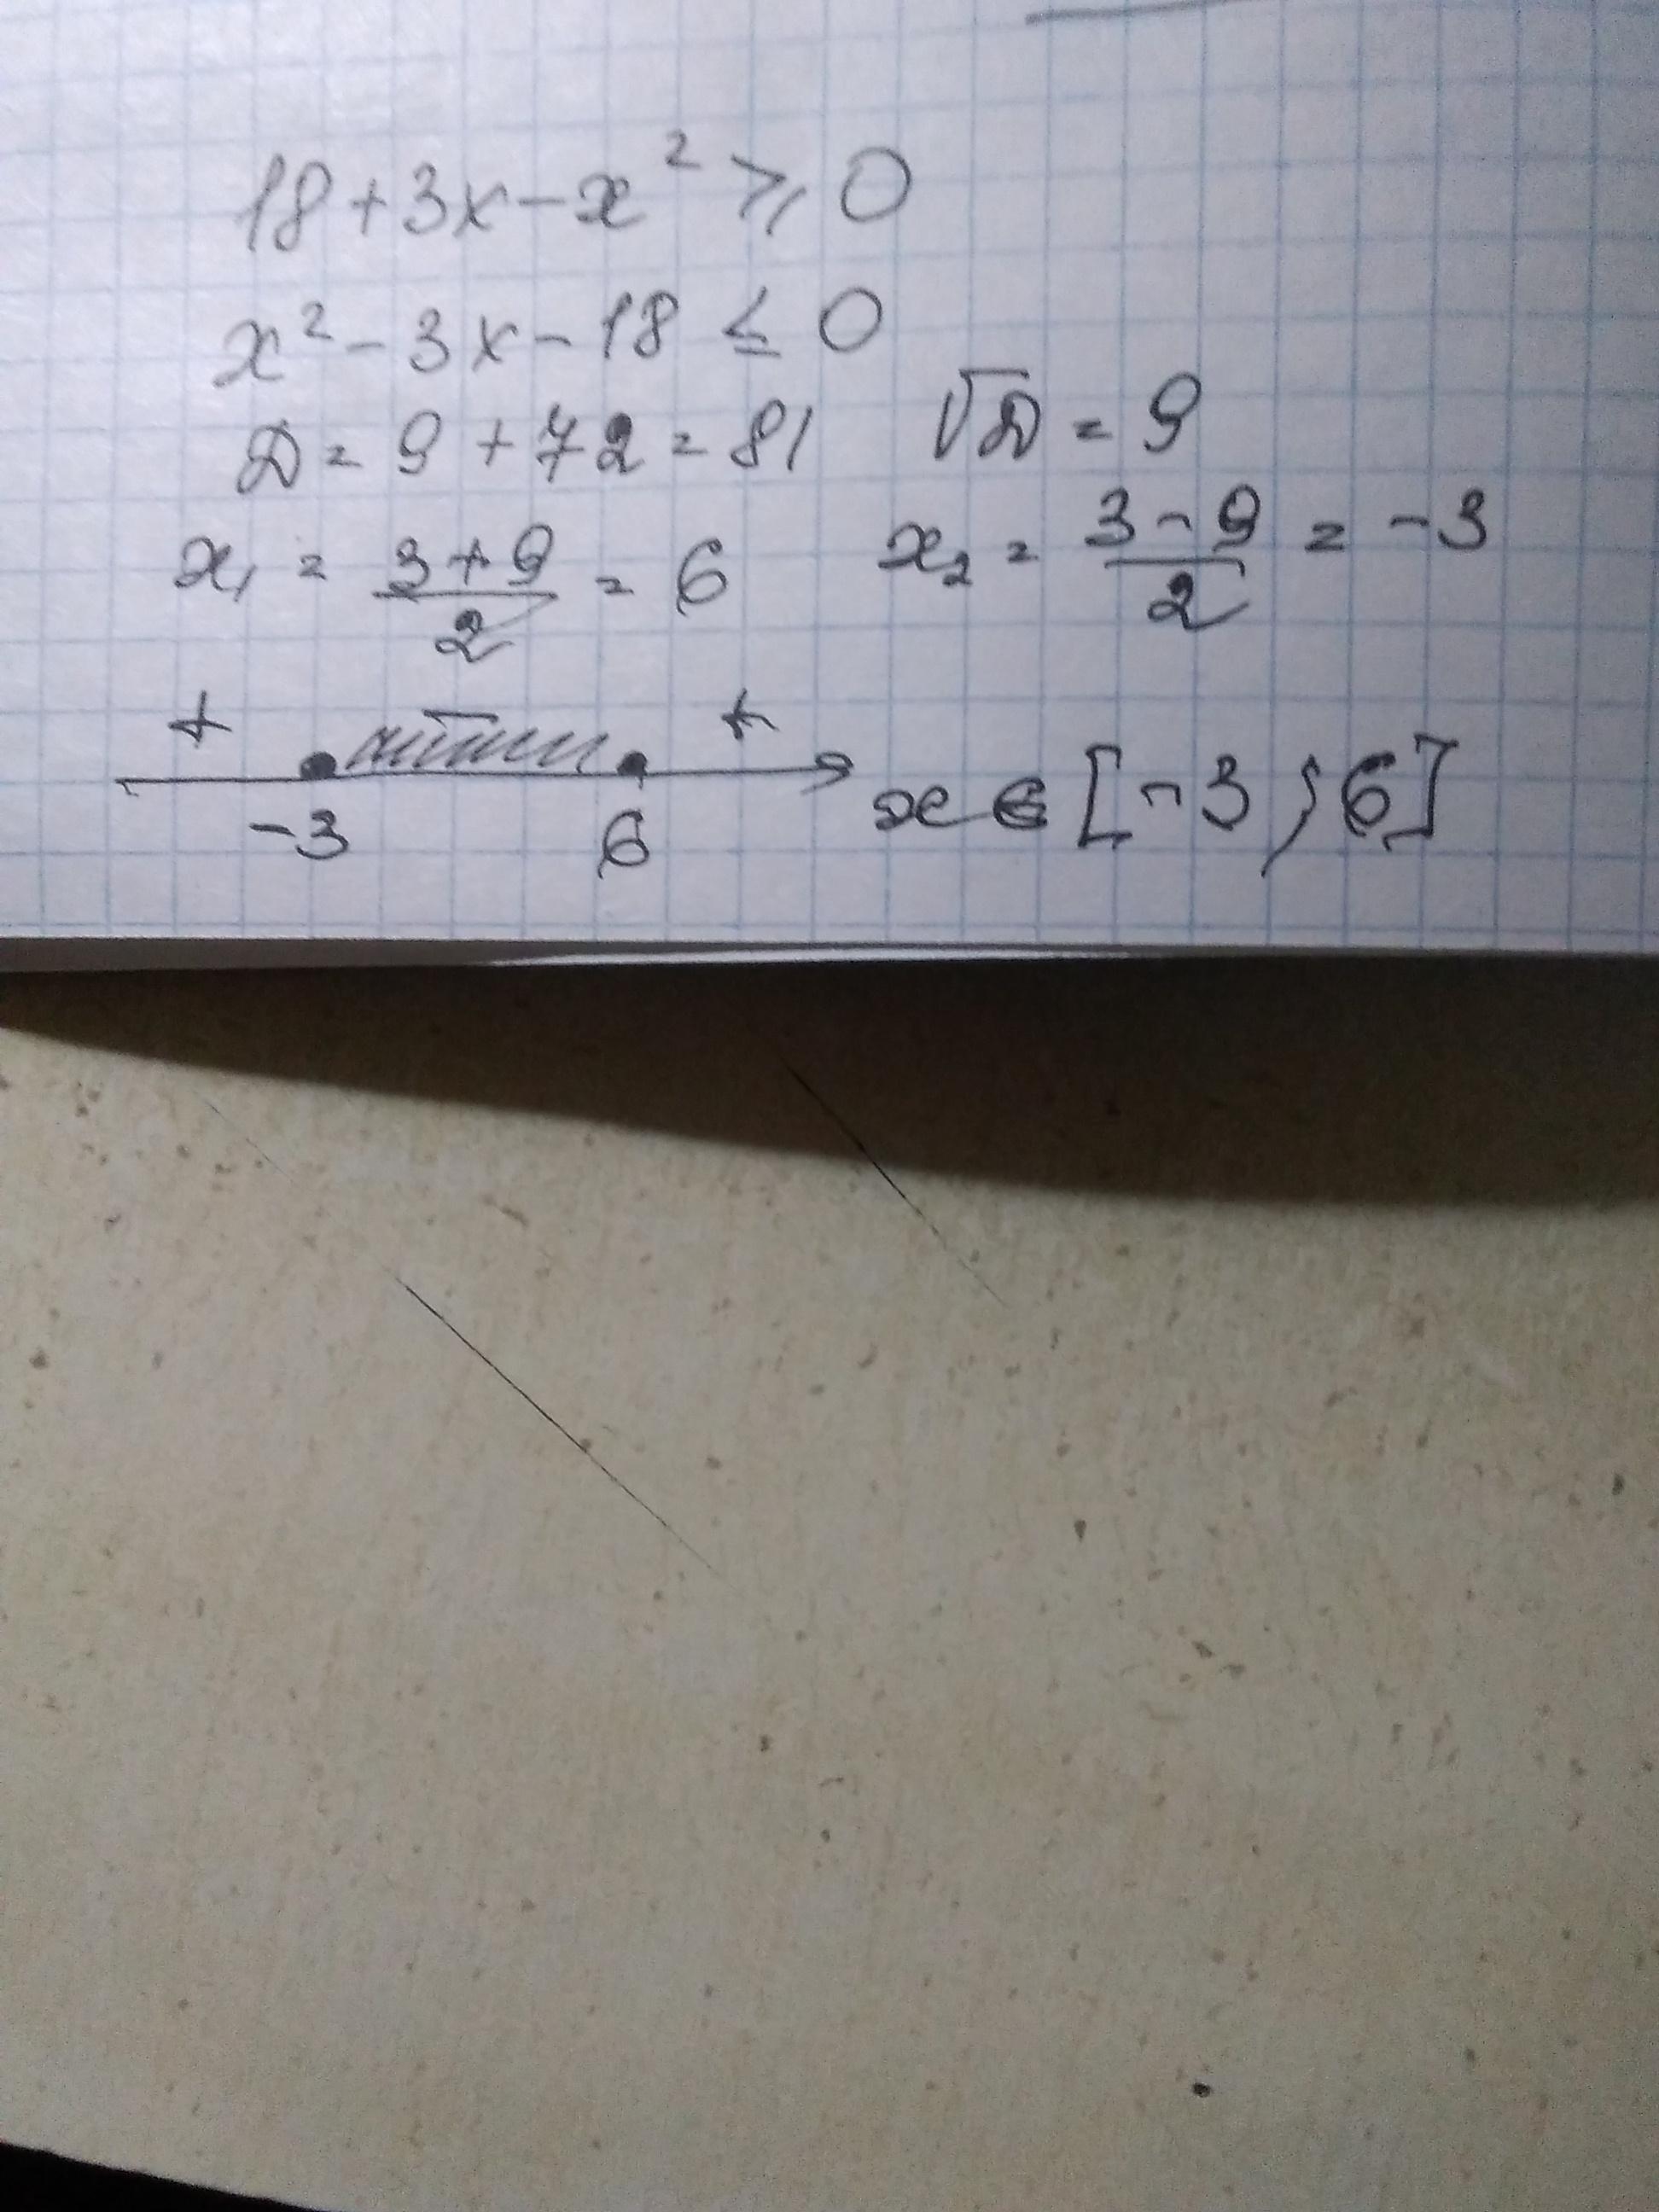 18+3x-x² ⩾ 0
x²-3x-18 ≤ 0
D = 9 + 72 = 81 √D = 9
x₁ = (3+9)/2 = 6 x₂ = (3-9)/2 = -3
+ - +
-3 6 x ∈ [-3; 6]